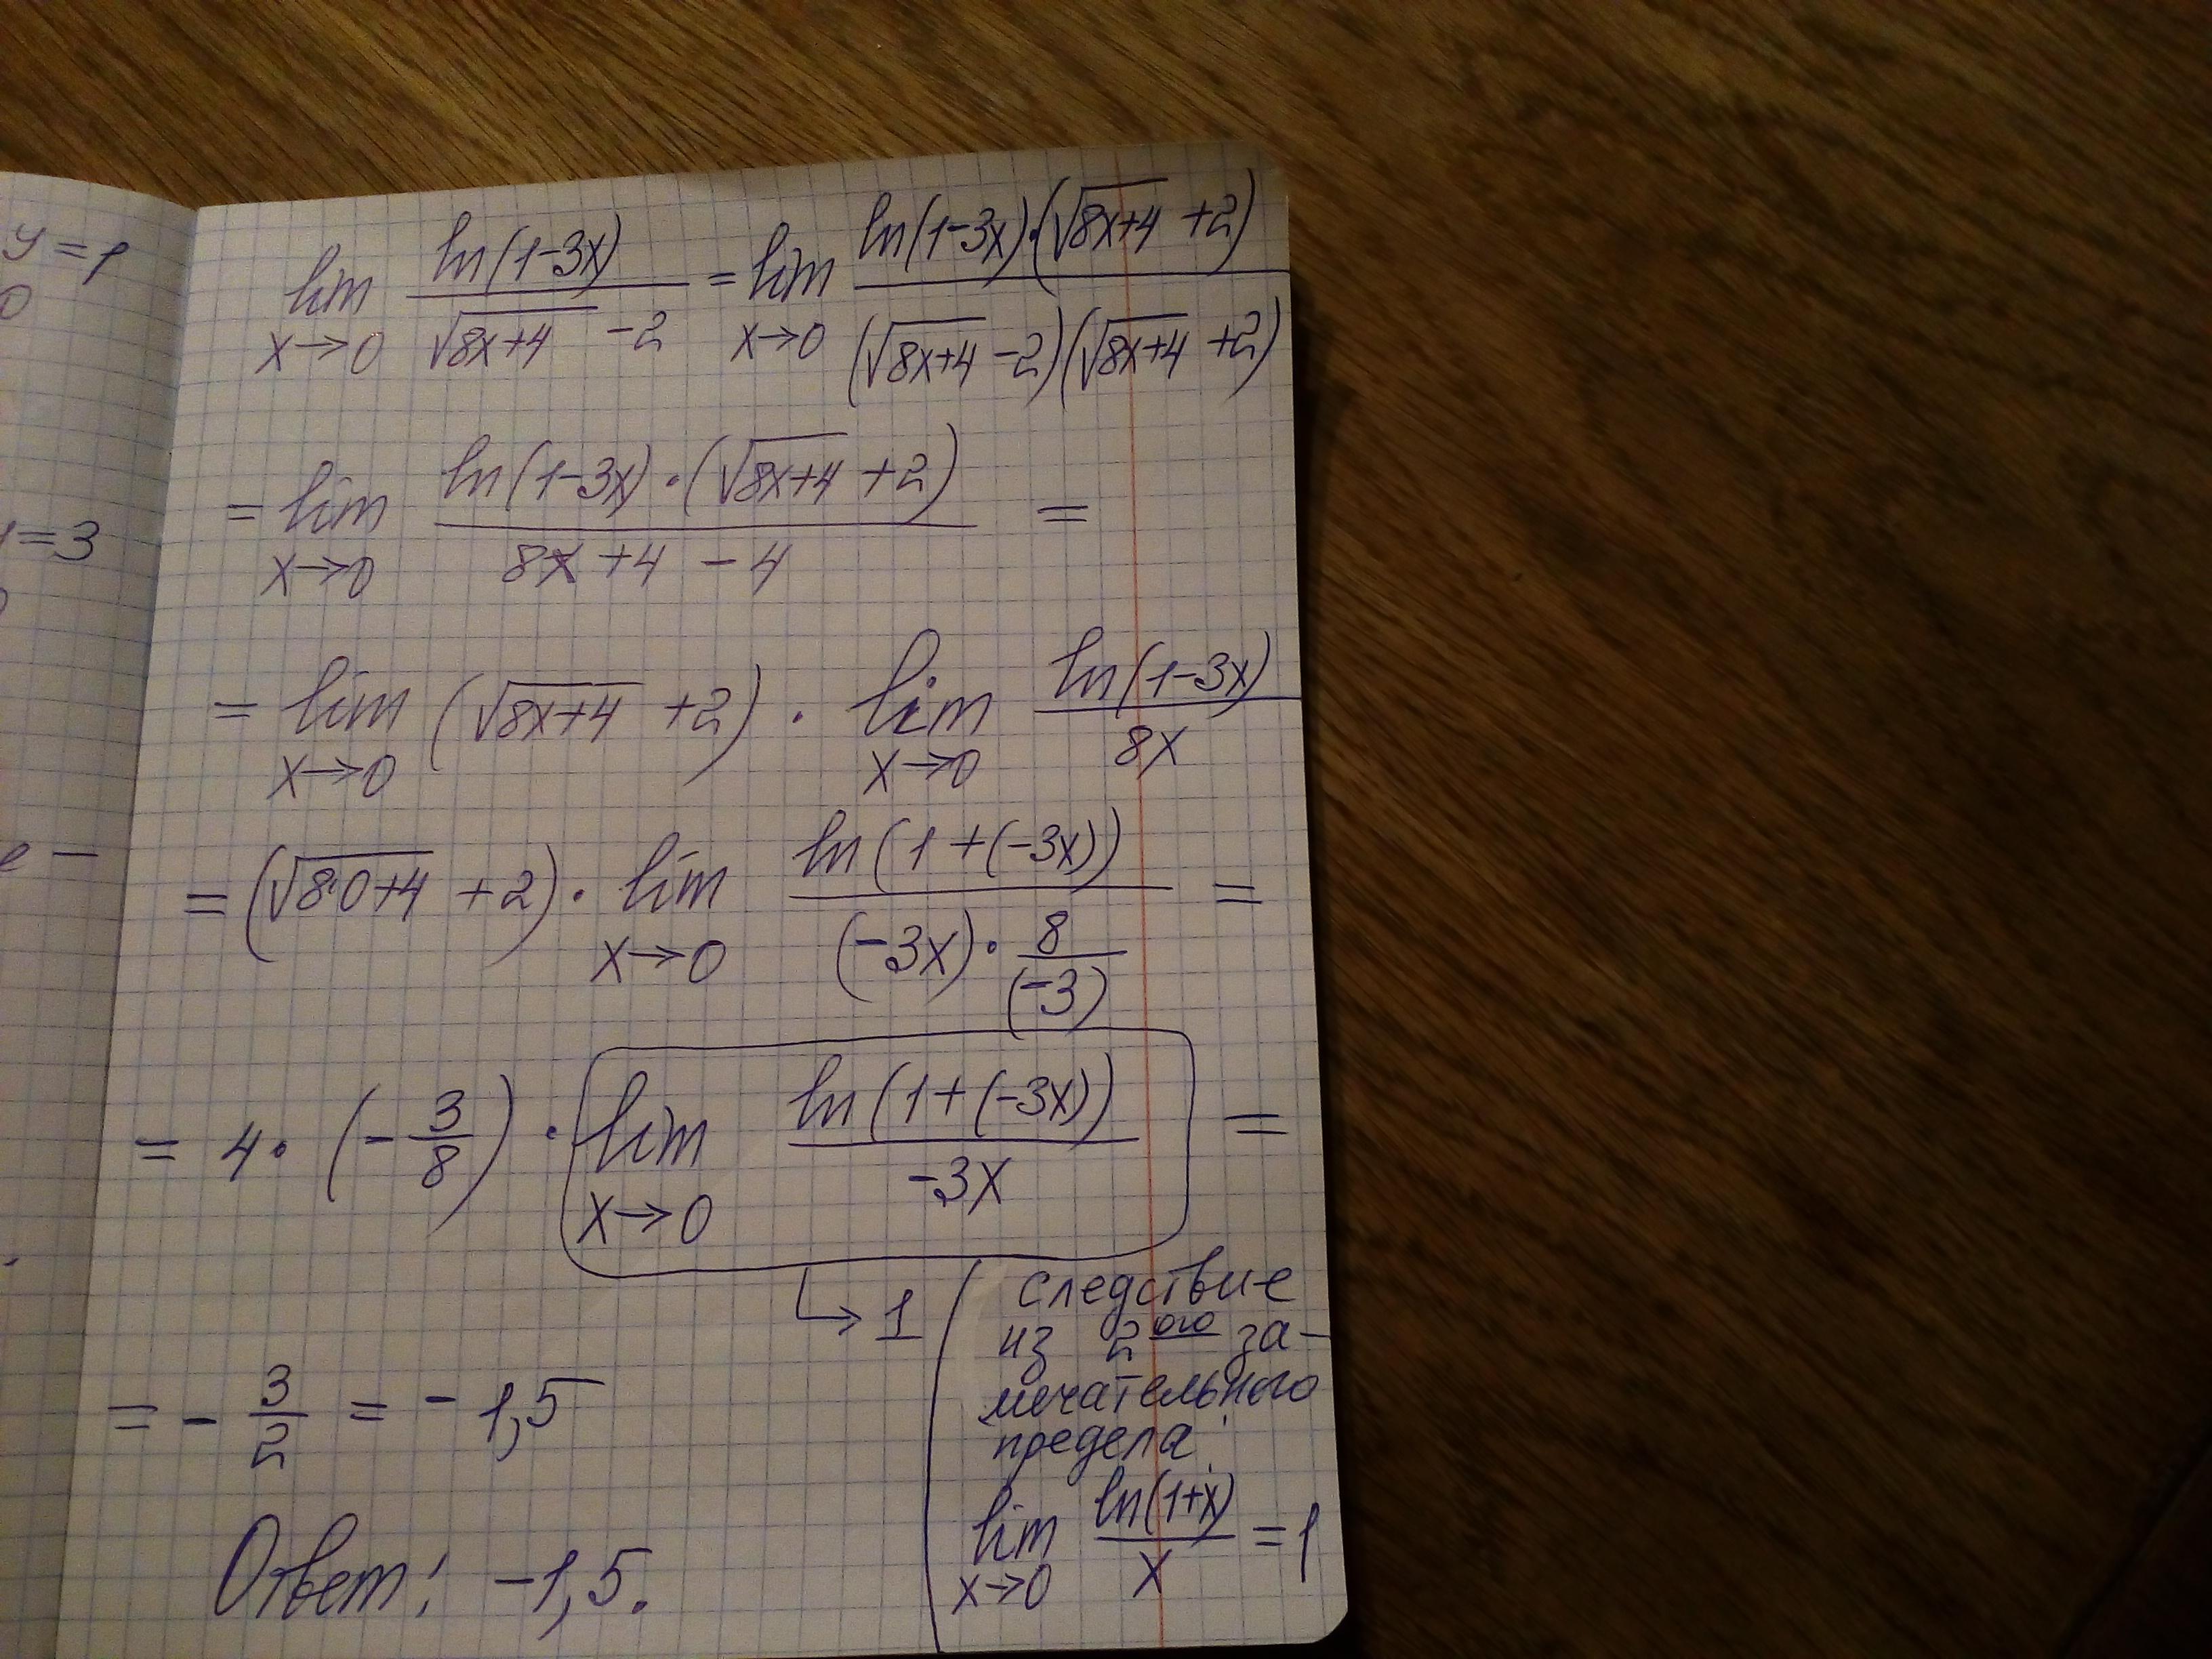 y=1
0
=3
e –
lim x→0 ln(1-3x) / (√(8x+4) -2) = lim x→0 ln(1-3x)·(√(8x+4) +2) / ((√(8x+4) -2)(√(8x+4) +2))
= lim x→0 ln(1-3x)·(√(8x+4) +2) / (8x+4-4) =
= lim x→0 (√(8x+4) +2) · lim x→0 ln(1-3x) / 8x
= (√(8·0+4) +2) · lim x→0 ln(1+(-3x)) / ((-3x)· 8/(-3)) =
= 4·(-3/8)· lim x→0 ln(1+(-3x)) / -3x =
↳ 1
следствие
из 2ого за-
мечательного
предела:
lim x→0 ln(1+x) / x = 1
= - 3/2 = -1,5
Ответ: -1,5.